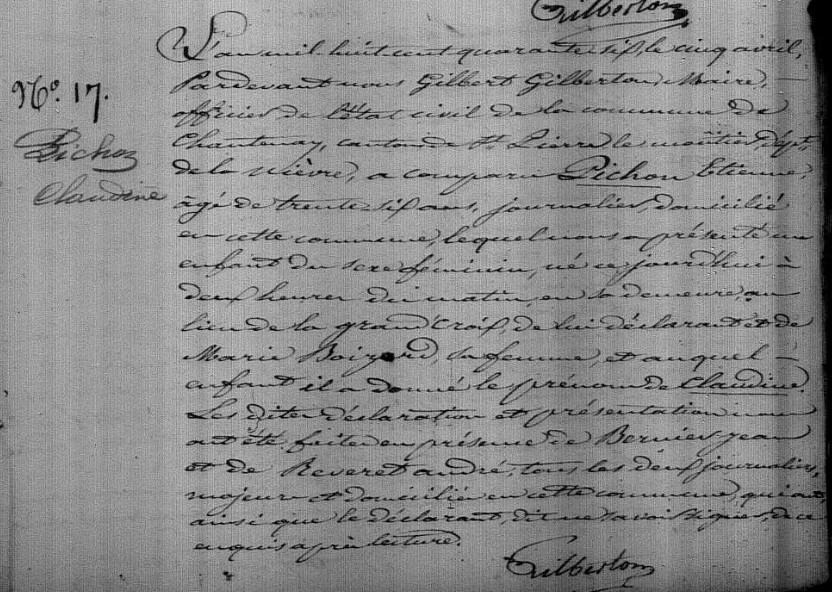 Gilberton
N.º 17.
Pichon
Claudine
L'an mil huit cent quarante six, le cinq avril,
Pardevant nous Gilbert Gilberton, Maire,
officier de l'état civil de la commune de
Chantenay, canton de St. Pierre le moûtier, dépt.
de la Nièvre, a comparu Pichon Etienne,
âgé de trente six ans, journalier, domicilié
en cette commune, lequel nous a présenté un
enfant du sexe féminin, né ce jourd'hui à
deux heures du matin, en sa demeure, au
lieu de la grand'croix, de lui déclarant et de
Marie Boizard, sa femme, et auquel
enfant il a donné le prénom de Claudine.
Les dites déclaration et présentation nous
ont été faites en présence de Bernier Jean
et de Reveret andré, tous les deux journaliers,
majeurs et domiciliés en cette commune, qui ont
ainsi que le déclarant, dit ne savoir signer, de ce
enquis après lecture.
Gilberton